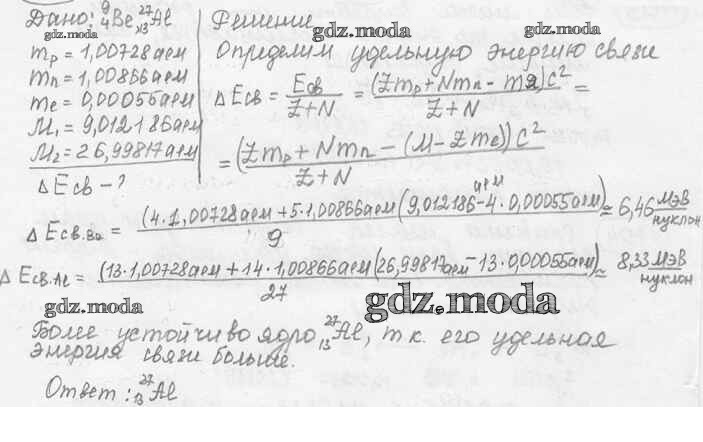 Дано: ⁹₄Be, ²⁷₁₃Al
mp = 1,00728 аем
mn = 1,00866 аем
me = 0,00055 аем
M₁ = 9,012186 аем
M₂ = 26,99817 аем
ΔEсв – ?
Решение
gdz.moda
gdz.moda
Определим удельную энергию связи
ΔEсв = Eсв/(Z+N) = (Zmp + Nmn - mя)c²/(Z+N) =
= (Zmp + Nmn - (M - Zme))c²/(Z+N)
ΔEсв.Be = (4·1,00728 аем + 5·1,00866 аем (9,012186 - 4·0,00055 аем)/9 ≈ 6,46 МэВ/нуклон
аем
ΔEсв.Al = (13·1,00728 аем + 14·1,00866 аем (26,99817 аем - 13·0,00055 аем)/27 ≈ 8,33 МэВ/нуклон
gdz.moda
gdz.moda
Более устойчиво ядро ²⁷₁₃Al, т.к. его удельная
энергия связи больше.
Ответ: ²⁷₁₃Al